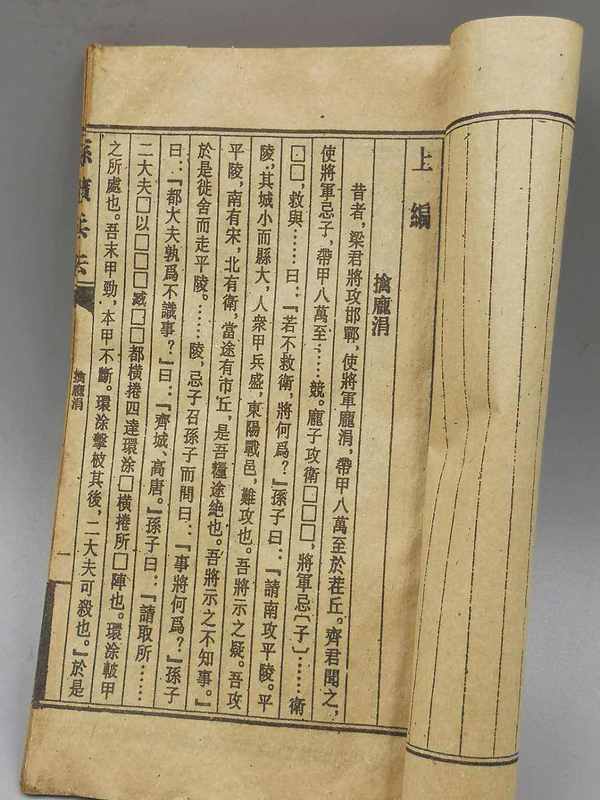 上編
擒龐涓
昔者，梁君將攻邯鄲，使將軍龐涓，帶甲八萬至於茬丘。齊君聞之，
使將軍忌子，帶甲八萬至……競。龐子攻衛□□□，將軍忌〔子〕……衛
□□，救與……曰：『若不救衛，將何爲？』孫子曰：『請南攻平陵。平
陵，其城小而縣大，人衆甲兵盛，東陽戰邑，難攻也。吾將示之疑。吾攻
平陵，南有宋，北有衛，當途有市丘，是吾糧途絶也。吾將示之不知事。』
於是徙舍而走平陵。……陵，忌子召孫子而問曰：『事將何爲？』孫子
曰：『都大夫孰爲不識事？』曰：『齊城、高唐。』孫子曰：『請取所……
二大夫□以□□□臧□□都橫捲四達環涂□橫捲所□陣也。環涂鈹甲
之所處也。吾末甲勁，本甲不斷。環涂擊柀其後，二大夫可殺也。』於是
孫臏兵法
擒龐涓
一